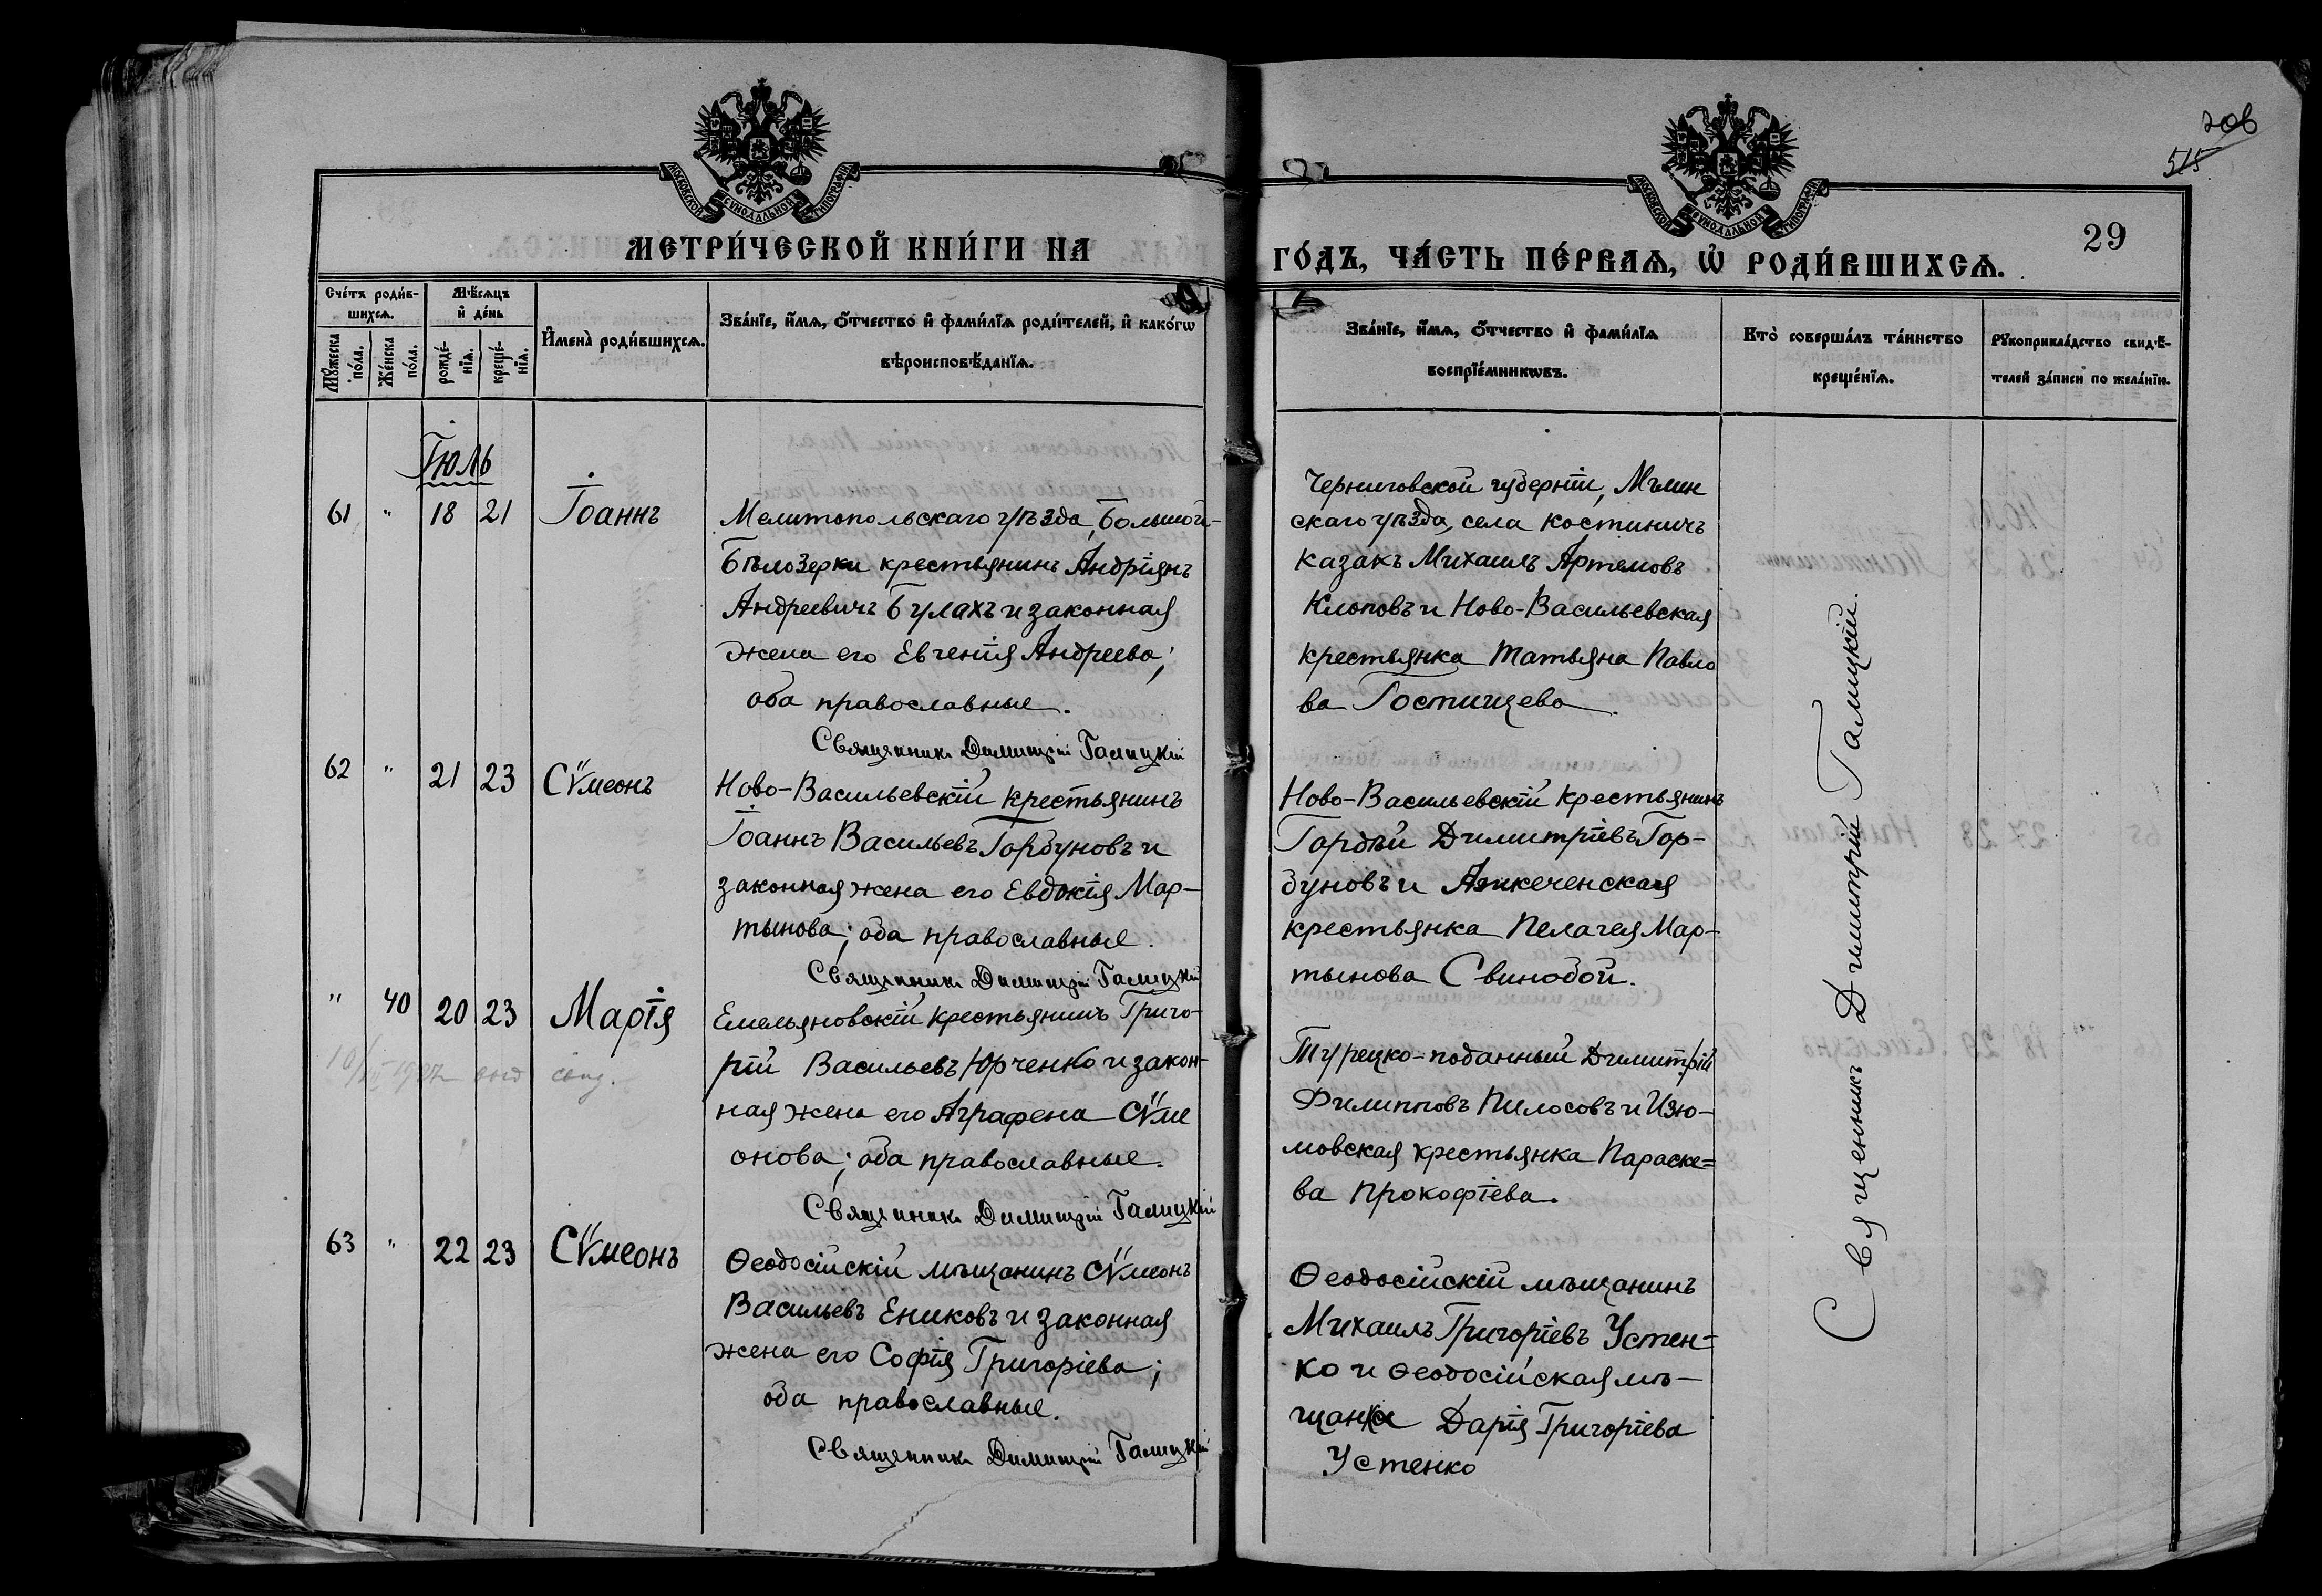 206
515
МОСКОВСКОЙ СѴНОДАЛЬНОЙ ТИПОГРАФІИ
МОСКОВСКОЙ СѴНОДАЛЬНОЙ ТИПОГРАФІИ
29
МЕТРИ́ЧЕСКОЙ КНИ́ГИ НА
ГО́ДЪ, ЧА́СТЬ ПЕ́РВАѦ, Ѡ РОДИ́ВШИХСѦ.
Сче́тъ роди́в-
шихсѧ.
Мꙋ́жеска по́ла.
Же́нска по́ла.
Мѣ́сѧцъ
и҆ де́нь
рожде́-
нїѧ.
креще́-
нїѧ.
И҆мена̀ роди́вшихсѧ.
Зва́нїе, и҆́мѧ, ѻ҆́тчество и҆ фами́лїѧ роди́телей, и҆ како́гѡ
вѣроисповѣ́данїѧ.
Зва́нїе, и҆́мѧ, ѻ҆́тчество и҆ фами́лїѧ
воспрїе́мникѡвъ.
Кто̀ соверша́лъ та́инство
креще́нїѧ.
Рꙋкоприкла́дство свидѣ́-
телей за́писи по жела́нїю.
Іюль
61 " 18 21 Іоаннъ
Мелитопольскаго уѣзда, Большой-
Бѣлозерки крестьянинъ Андріянъ
Андреевичъ Булахъ и законная
жена его Евгенія Андреева;
оба православные.
Священникъ Димитрій Галицкій
Черниговской губерніи, Мглин
скаго уѣзда, села Костиничъ
казакъ Михаилъ Артемовъ
Клоповъ и Ново-Васильевская
крестьянка Татьяна Павло
ва Гостищева.
62 " 21 23 Сѵмеонъ
Ново-Васильевскій крестьянинъ
Іоаннъ Васильевъ Горбуновъ и
законная жена его Евдокія Мар-
тынова; оба православные.
Священникъ Димитрій Галицкій
Ново-Васильевскій крестьянинъ
Гордѣй Димитріевъ Гор-
буновъ и
крестьянка Пелагея Мар-
тынова Свинобой.
" 40 20 23 Марія
1927
Емельяновскій крестьянинъ Григо-
рій Васильевъ Юрченко и закон-
ная жена его Аграфена Сѵме
онова; оба православные.
Священникъ Димитрій Галицкій
Турецко-поданный Димитрій
Филипповъ Пилосовъ и Изю-
мовская крестьянка Параске=
ва Прокофіева.
63 " 22 23 Сѵмеонъ
Ѳеодосійскій мѣщанинъ Сѵмеонъ
Васильевъ Ениковъ и законная
жена его Софія Григоріева;
оба православные.
Священникъ Димитрій Галицкій
Ѳеодосійскій мѣщанинъ
Михаилъ Григоріевъ Устен-
ко и Ѳеодосійская мѣ-
щанка Дарія Григоріева
Устенко
Священникъ Димитрій Галицкій.